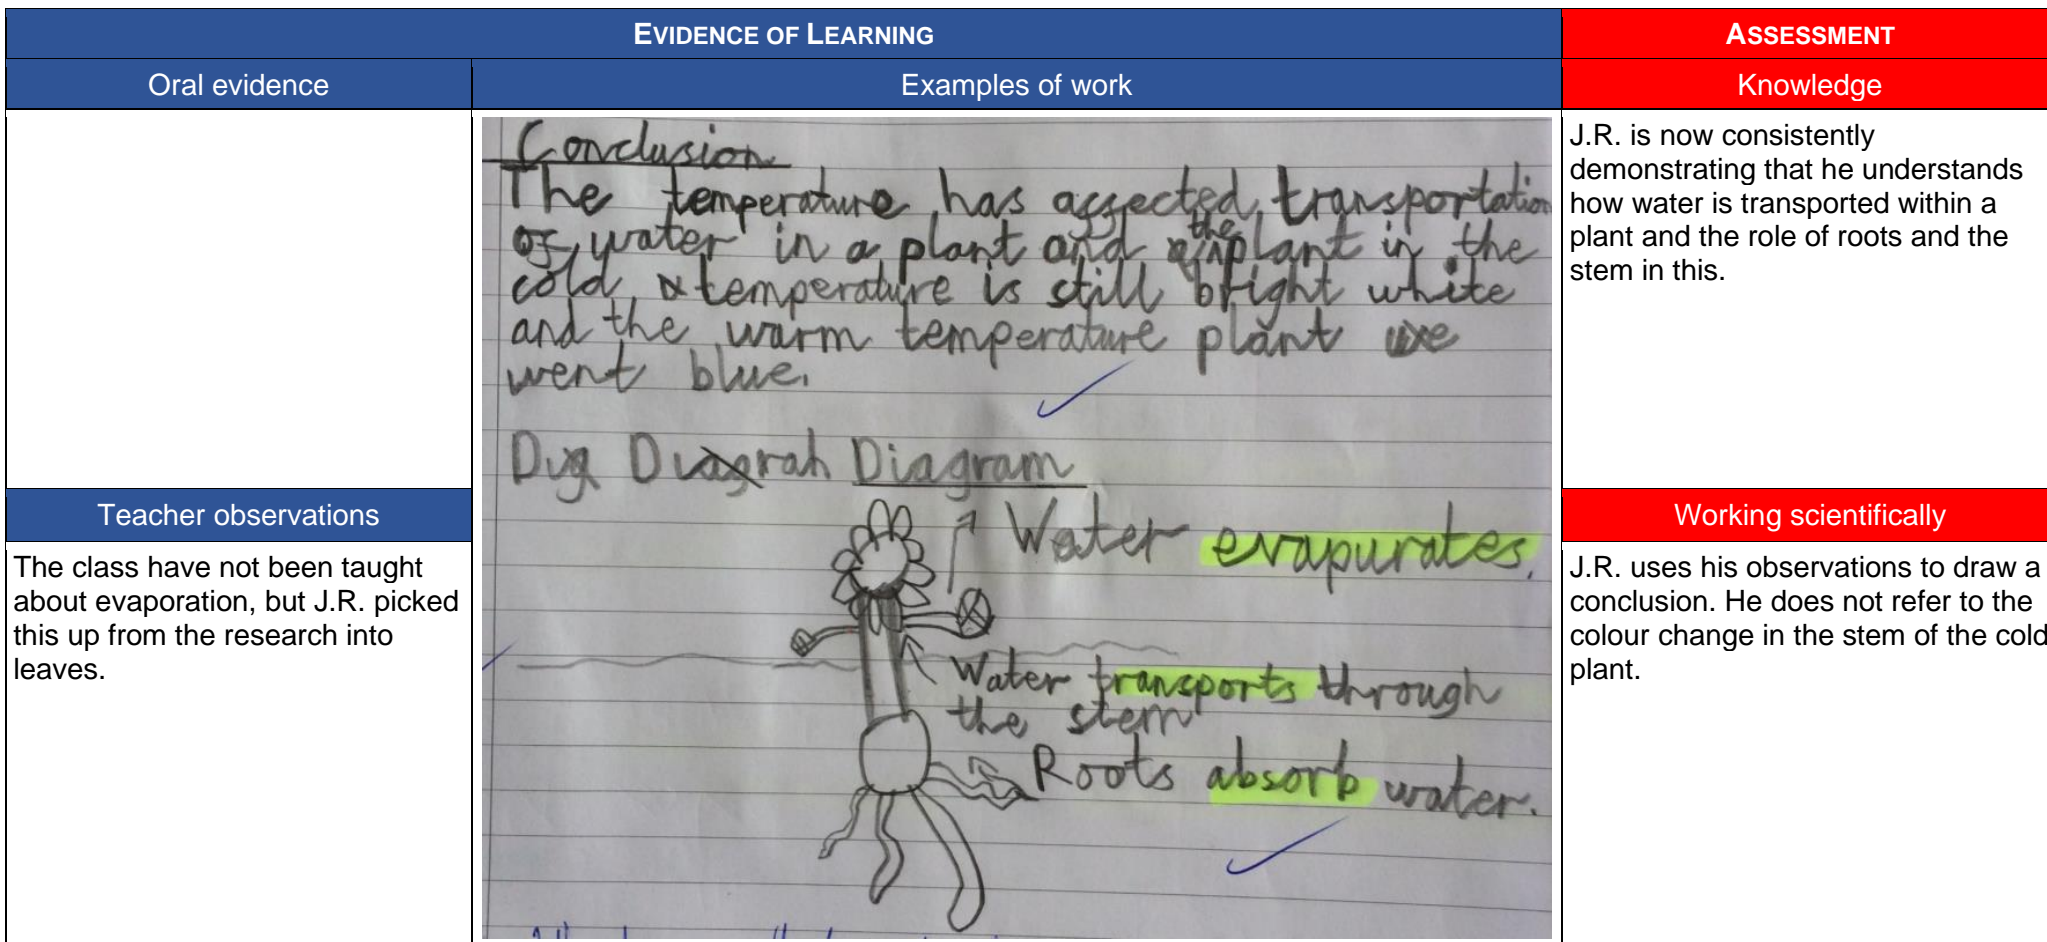 EVIDENCE OF LEARNING
ASSESSMENT
Oral evidence
Examples of work
Knowledge
Conclusion
The temperature has affected transportation
of water in a plant and the plant in the
cold temperature is still bright white
and the warm temperature plant
went blue.
Diagram
Water evapurates.
Water transports through
the stem
Roots absorb water.
J.R. is now consistently
demonstrating that he understands
how water is transported within a
plant and the role of roots and the
stem in this.
Teacher observations
The class have not been taught
about evaporation, but J.R. picked
this up from the research into
leaves.
Working scientifically
J.R. uses his observations to draw a
conclusion. He does not refer to the
colour change in the stem of the cold
plant.